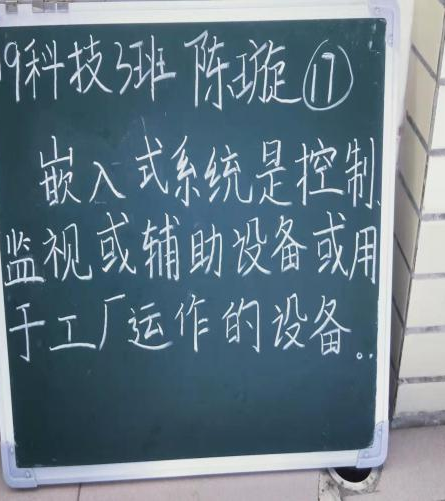 19科技3班 陈璇 ⑰
嵌入式系统是控制、
监视或辅助设备或用
于工厂运作的设备。.